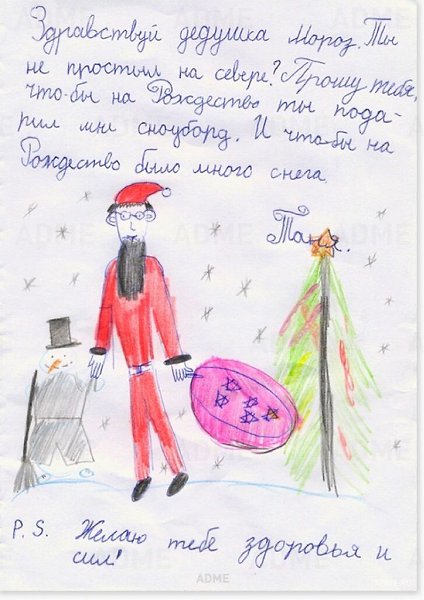 Здравствуй дедушка Мороз. Ты
не простыл на севере? Прошу тебя,
что-бы на Рождество ты пода-
рил мне сноуборд. И что-бы на
Рождество было много снега.
Таня.
P.S. Желаю тебе здоровья и
сил!
ADME